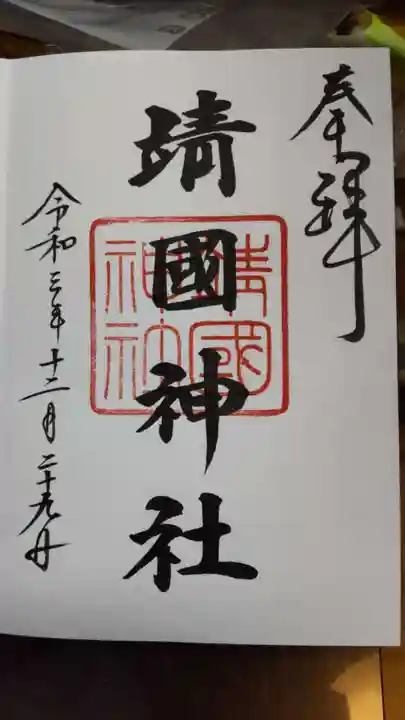 奉拝
靖國神社
靖國神社
令和三年十二月二十九日